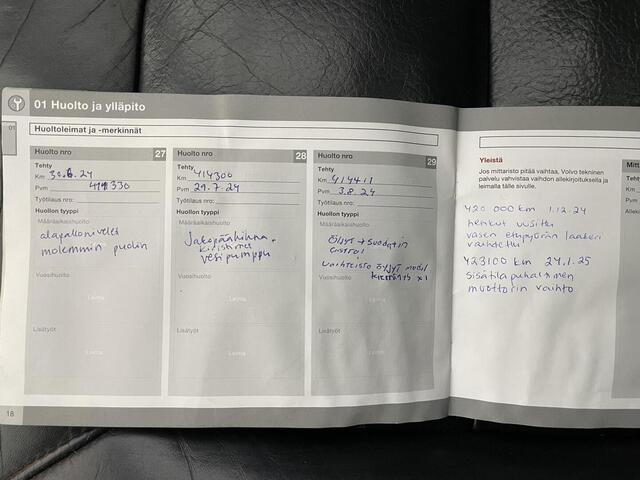 01 Huolto ja ylläpito
01
Huoltoleimat ja -merkinnät
Huolto nro 27
Tehty
Km 30.6.24
Pvm 411330
Työtilaus nro:
Huollon tyyppi
Määräaikaishuolto
alapallonivelet
molemmin puolin
Vuosihuolto
Leima
Lisätyöt
Leima
Huolto nro 28
Tehty
Km 414300
Pvm 29.7.24
Työtilaus nro:
Huollon tyyppi
Määräaikaishuolto
Jakopäähihna +
kiristimet
vesipumppu
Vuosihuolto
Leima
Lisätyöt
Leima
Huolto nro 29
Tehty
Km 414417
Pvm 3.8.24
Työtilaus nro:
Huollon tyyppi
Määräaikaishuolto
Öljyt → Suodatin
Castrol
Vaihteisto öljyt
x1
Vuosihuolto
Leima
Lisätyöt
Leima
18
Yleistä
Jos mittaristo pitää vaihtaa, Volvo tekninen
palvelu vahvistaa vaihdon allekirjoituksella ja
leimalla tälle sivulle.
420 000 km 1.12.24
henkut uusittu
vasen etupyörän laakeri
vaihdettu
423100 km 27.1.25
Sisätilapuhaltimen
moottorin vaihto